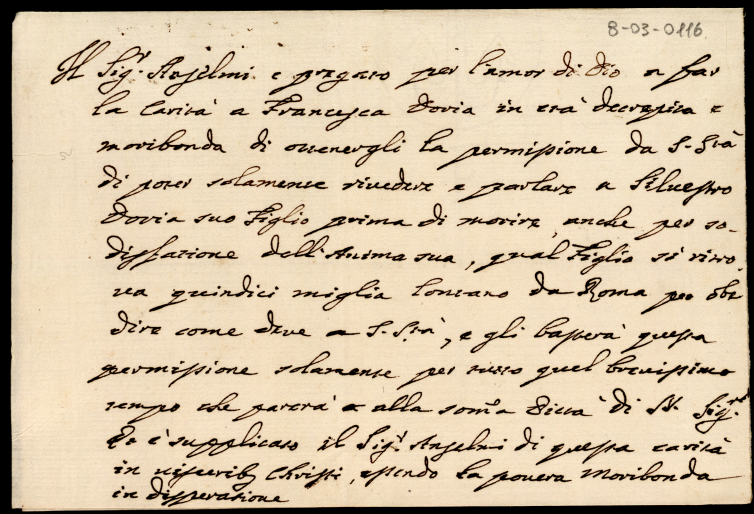 8-03-0116
Il Sig.r Anselmi è pregato per l'amor di Dio a far
la Carità a Francesca Doria in età decrepita e
moribonda di ottenergli la permissione da S. S.tà
di poter solamente rivedere e parlare a Silvestro
Doria suo Figlio prima di morire, anche per so-
disfazione dell'Anima sua, qual Figlio si ritro-
va quindici miglia lontano da Roma per obe
dire come deve a S. S.tà, e gli basterà questa
permissione solamente per tutto quel brevissimo
tempo che parerà alla som.a Pietà di N. Sig.re
Et è supplicato il Sig.r Anselmi di questa carità
in visceribus Christi, essendo la povera Moribonda
in disperatione